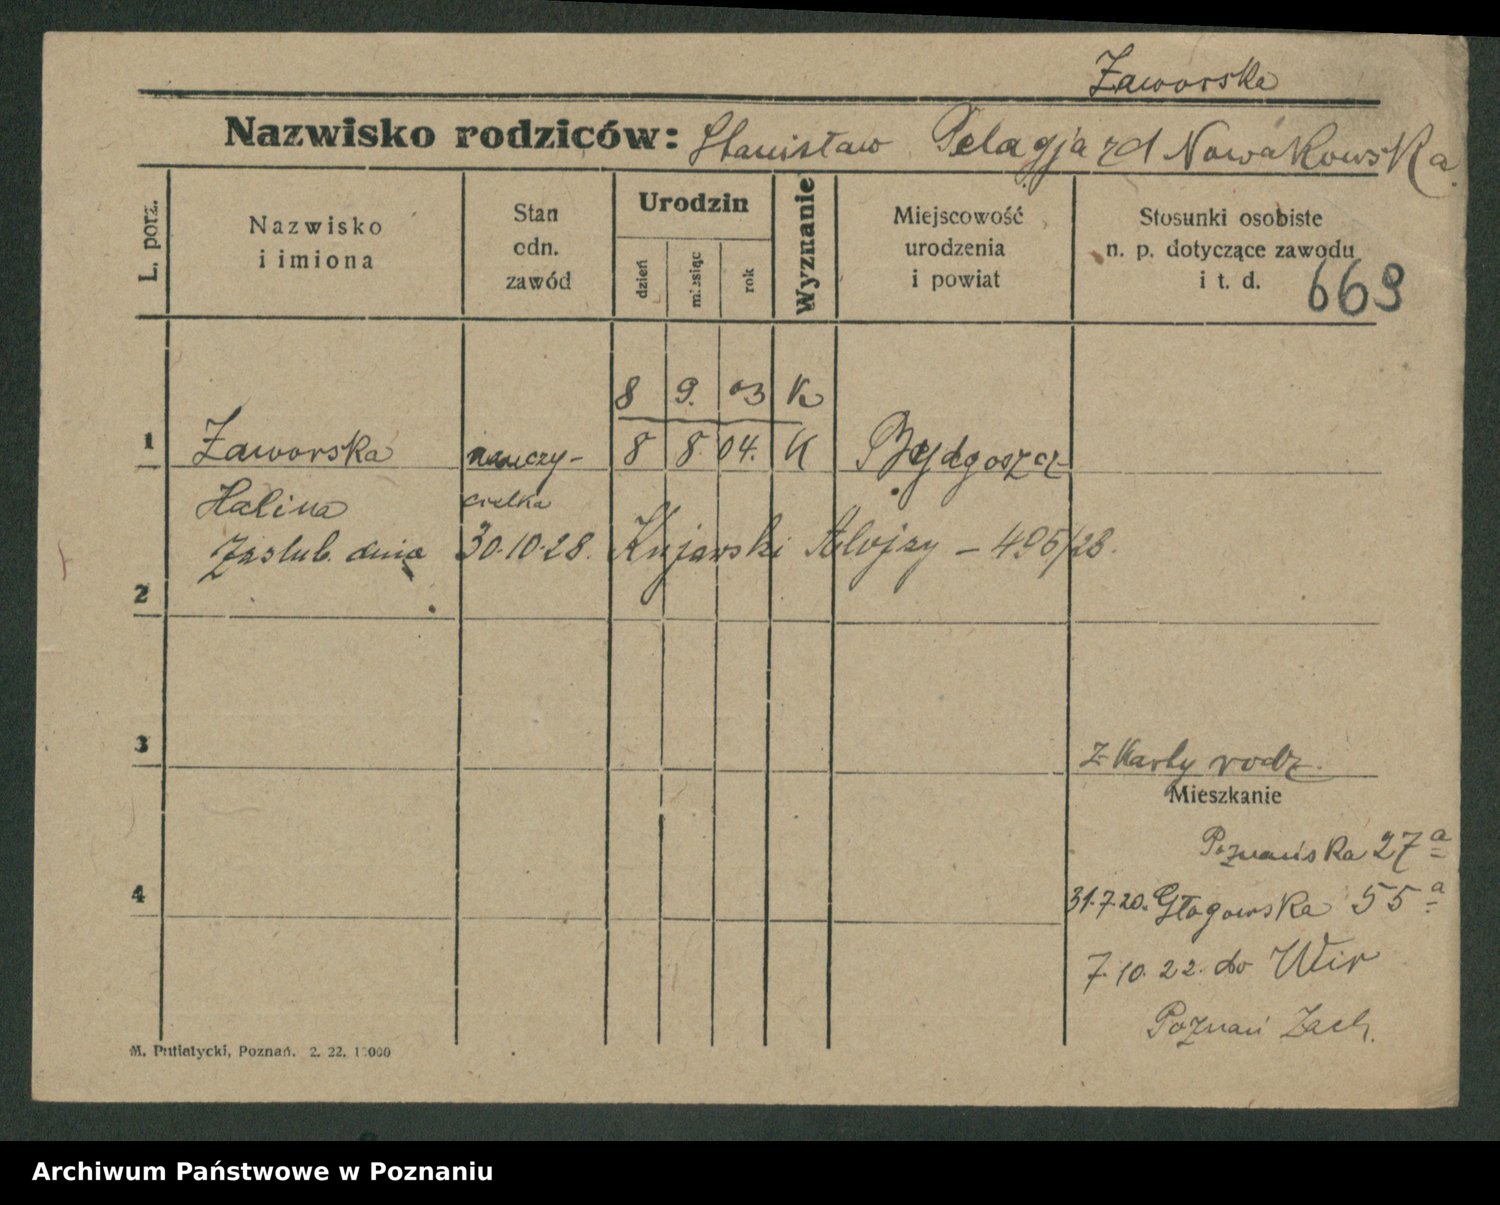 Zaworska
Nazwisko rodziców: Stanisław Pelagja zd Nowakowska.
L. porz.
Nazwisko
i imiona
Stan
odn.
zawód
Urodzin
dzień
miesiąc
rok
Wyznanie
Miejscowość
urodzenia
i powiat
Stosunki osobiste
n. p. dotyczące zawodu
i t. d.
669
8 9. 03 K
1 Zaworska nauczy- 8 8. 04. K Bydgoszcz
Halina cielka
Zaslub. dnia 30.10.28. Kujawski Alojzy – 495/28.
2
3
z Karty rodz.
Mieszkanie
Poznańska 27a
4
31.7.20. Głogowska 55a
7.10.22. do Wir
Poznań Zach.
M. Putiatycki, Poznań. 2. 22. 10000
Archiwum Państwowe w Poznaniu